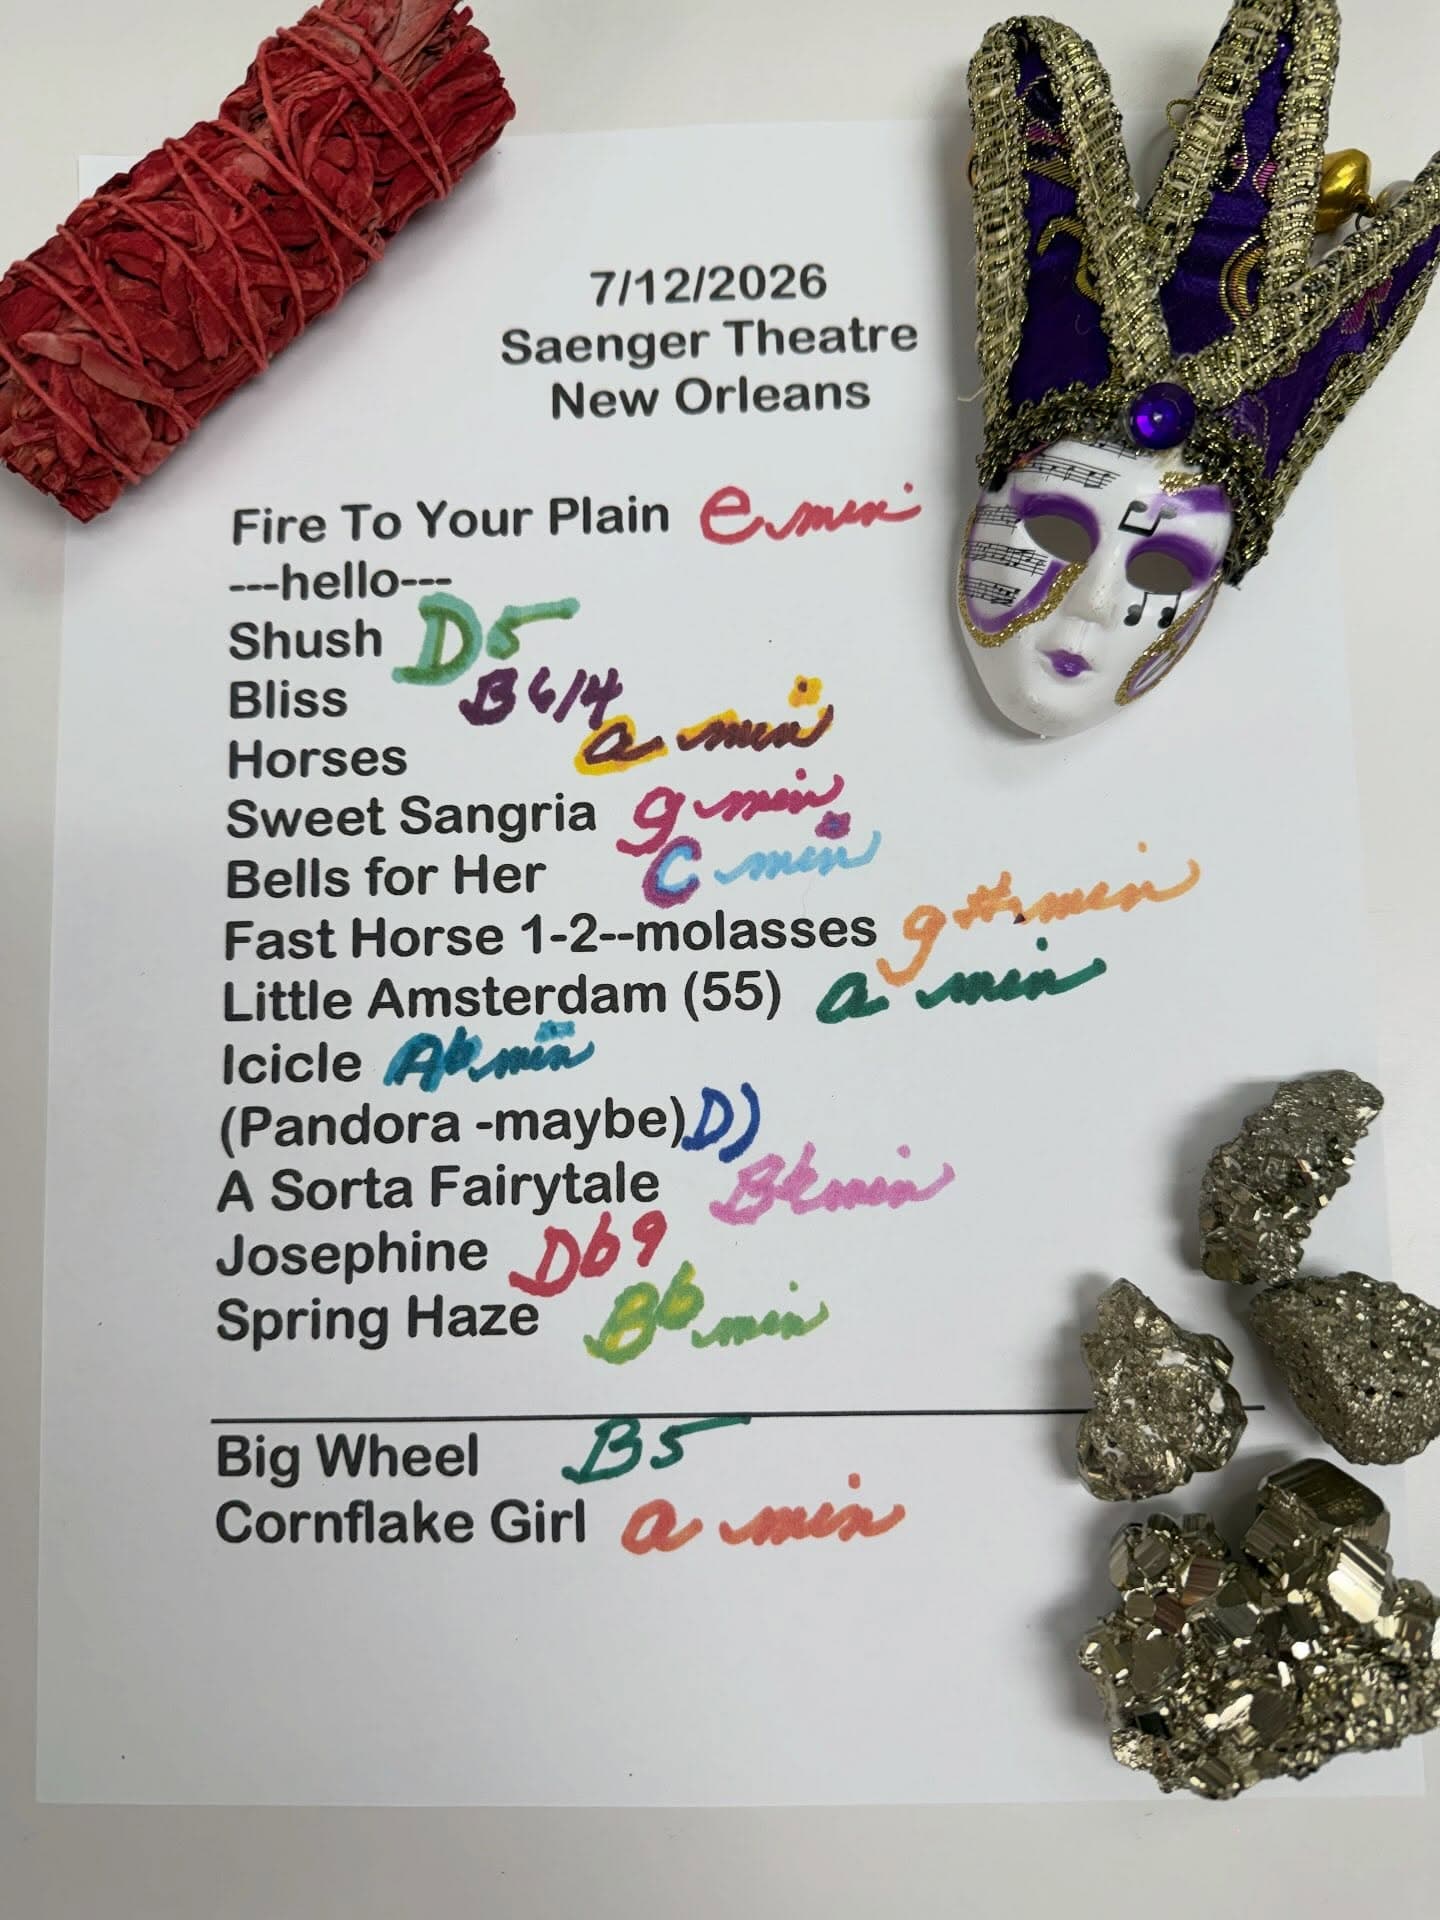 7/12/2026
Saenger Theatre
New Orleans
Fire To Your Plain e min
---hello---
Shush D5
Bliss B6/4
Horses a min
Sweet Sangria g min
Bells for Her C min
Fast Horse 1-2--molasses g# min
Little Amsterdam (55) a min
Icicle Ab min
(Pandora -maybe) D)
A Sorta Fairytale Bb min
Josephine Db9
Spring Haze Bb min
Big Wheel B5
Cornflake Girl a min